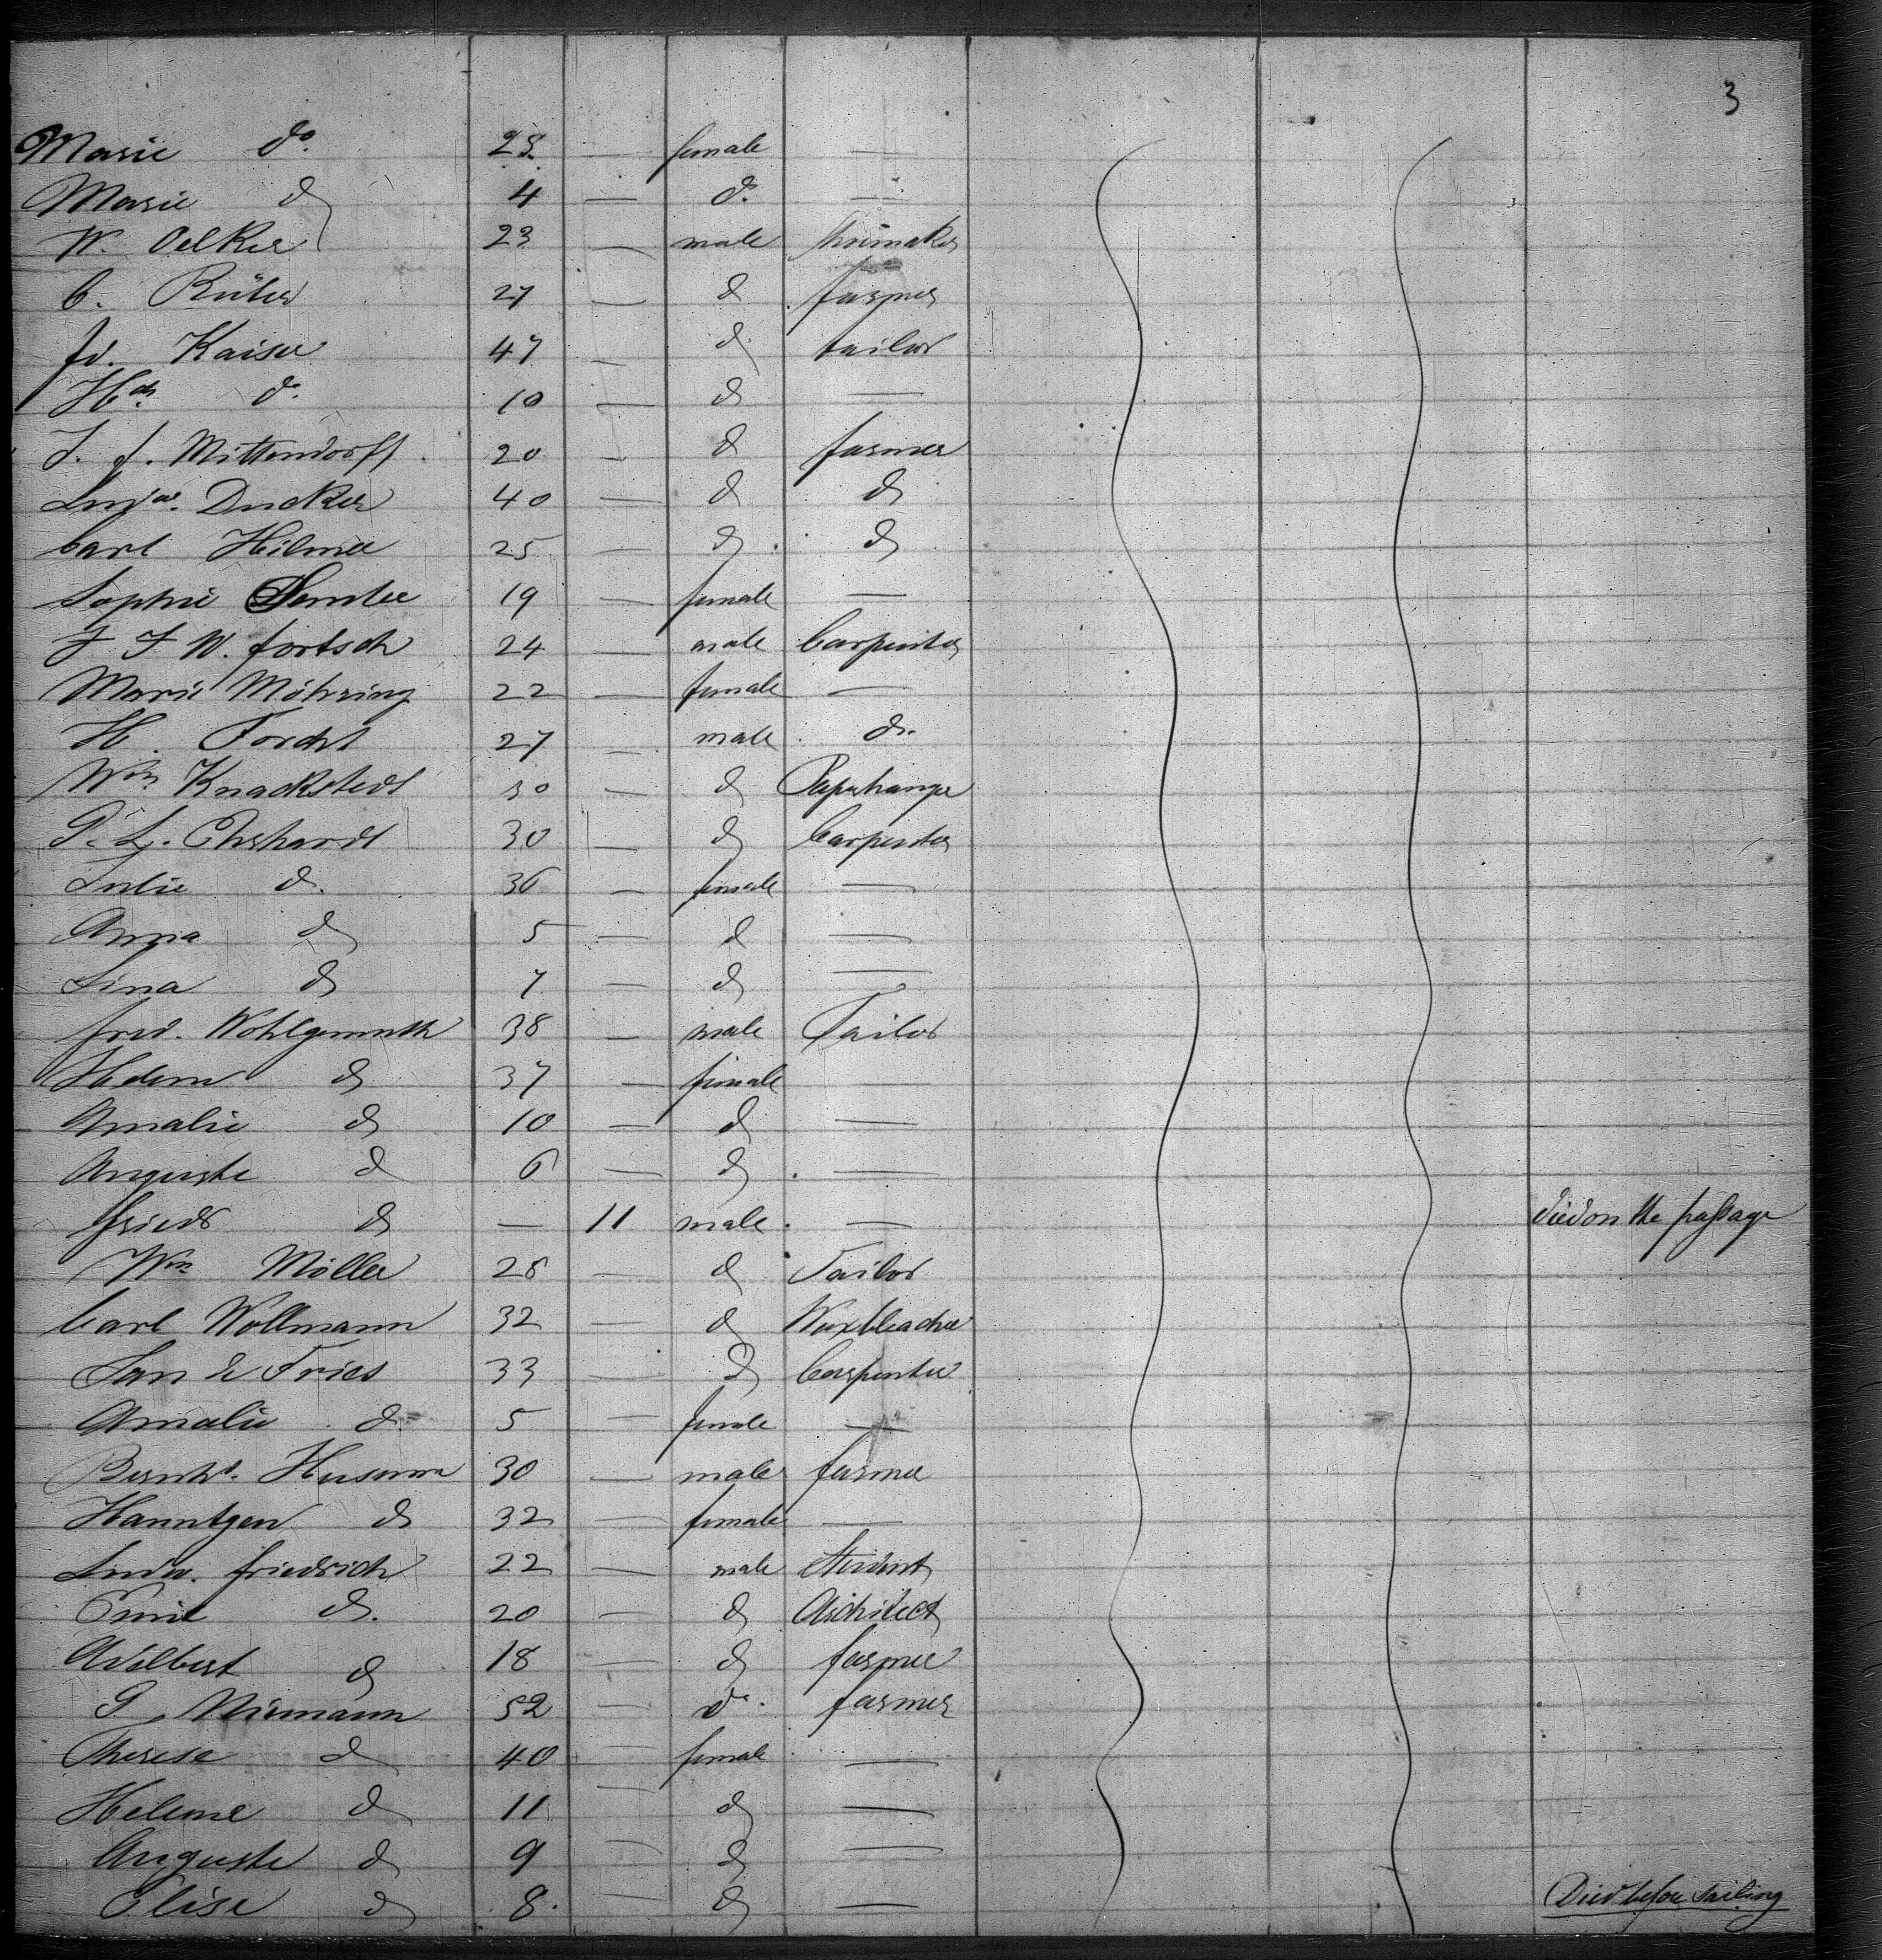 3
Marie do. 28. — female —
Marie do 4 — do. —
W. Oelker 23 — male
C. Rüter 27 — do farmer
Fr. Kaiser 47 — do tailor
Hch. do. 10 — do —
J. F. Mittendorff 20 — do farmer
Ludw. Ducker 40 — do do
Carl Hilmer 25 — do do
Sophie 19 — female —
F F W. Fortsch 24 — male Carpenter
Marie Möhring 22 — female —
H. Forcht 27 — male do.
Wm Knackstedt 30 — do Paperhanger
P. L. Ehrhardt 30 — do Carpenter
Julie do. 36 — female —
Anna do 5 — do —
Lina do 7 — do —
Fred. Wohlgemuth 38 — male Tailor
Helene do 37 — female
Amalie do 10 — do —
Auguste do 6 — do —
Friedr do — 11 male — died on the passage
Wm Möller 28 — do Tailor
Carl Wollmann 32 — do Waxbleacher
Jan de Fries 33 — do Carpenter
Amalie do. 5 — female —
Bernhd. Husmann 30 — male farmer
Hanntgen do 32 — female —
Ludw. Friedrich 22 — male Student
Emil do. 20 — do Architect
Adelbert do 18 — do farmer
G. Niemann 52 — do. farmer
Therese do 40 — female —
Helene do 11 — do —
Auguste do 9 — do —
Elise do 8. — do — Died before sailing